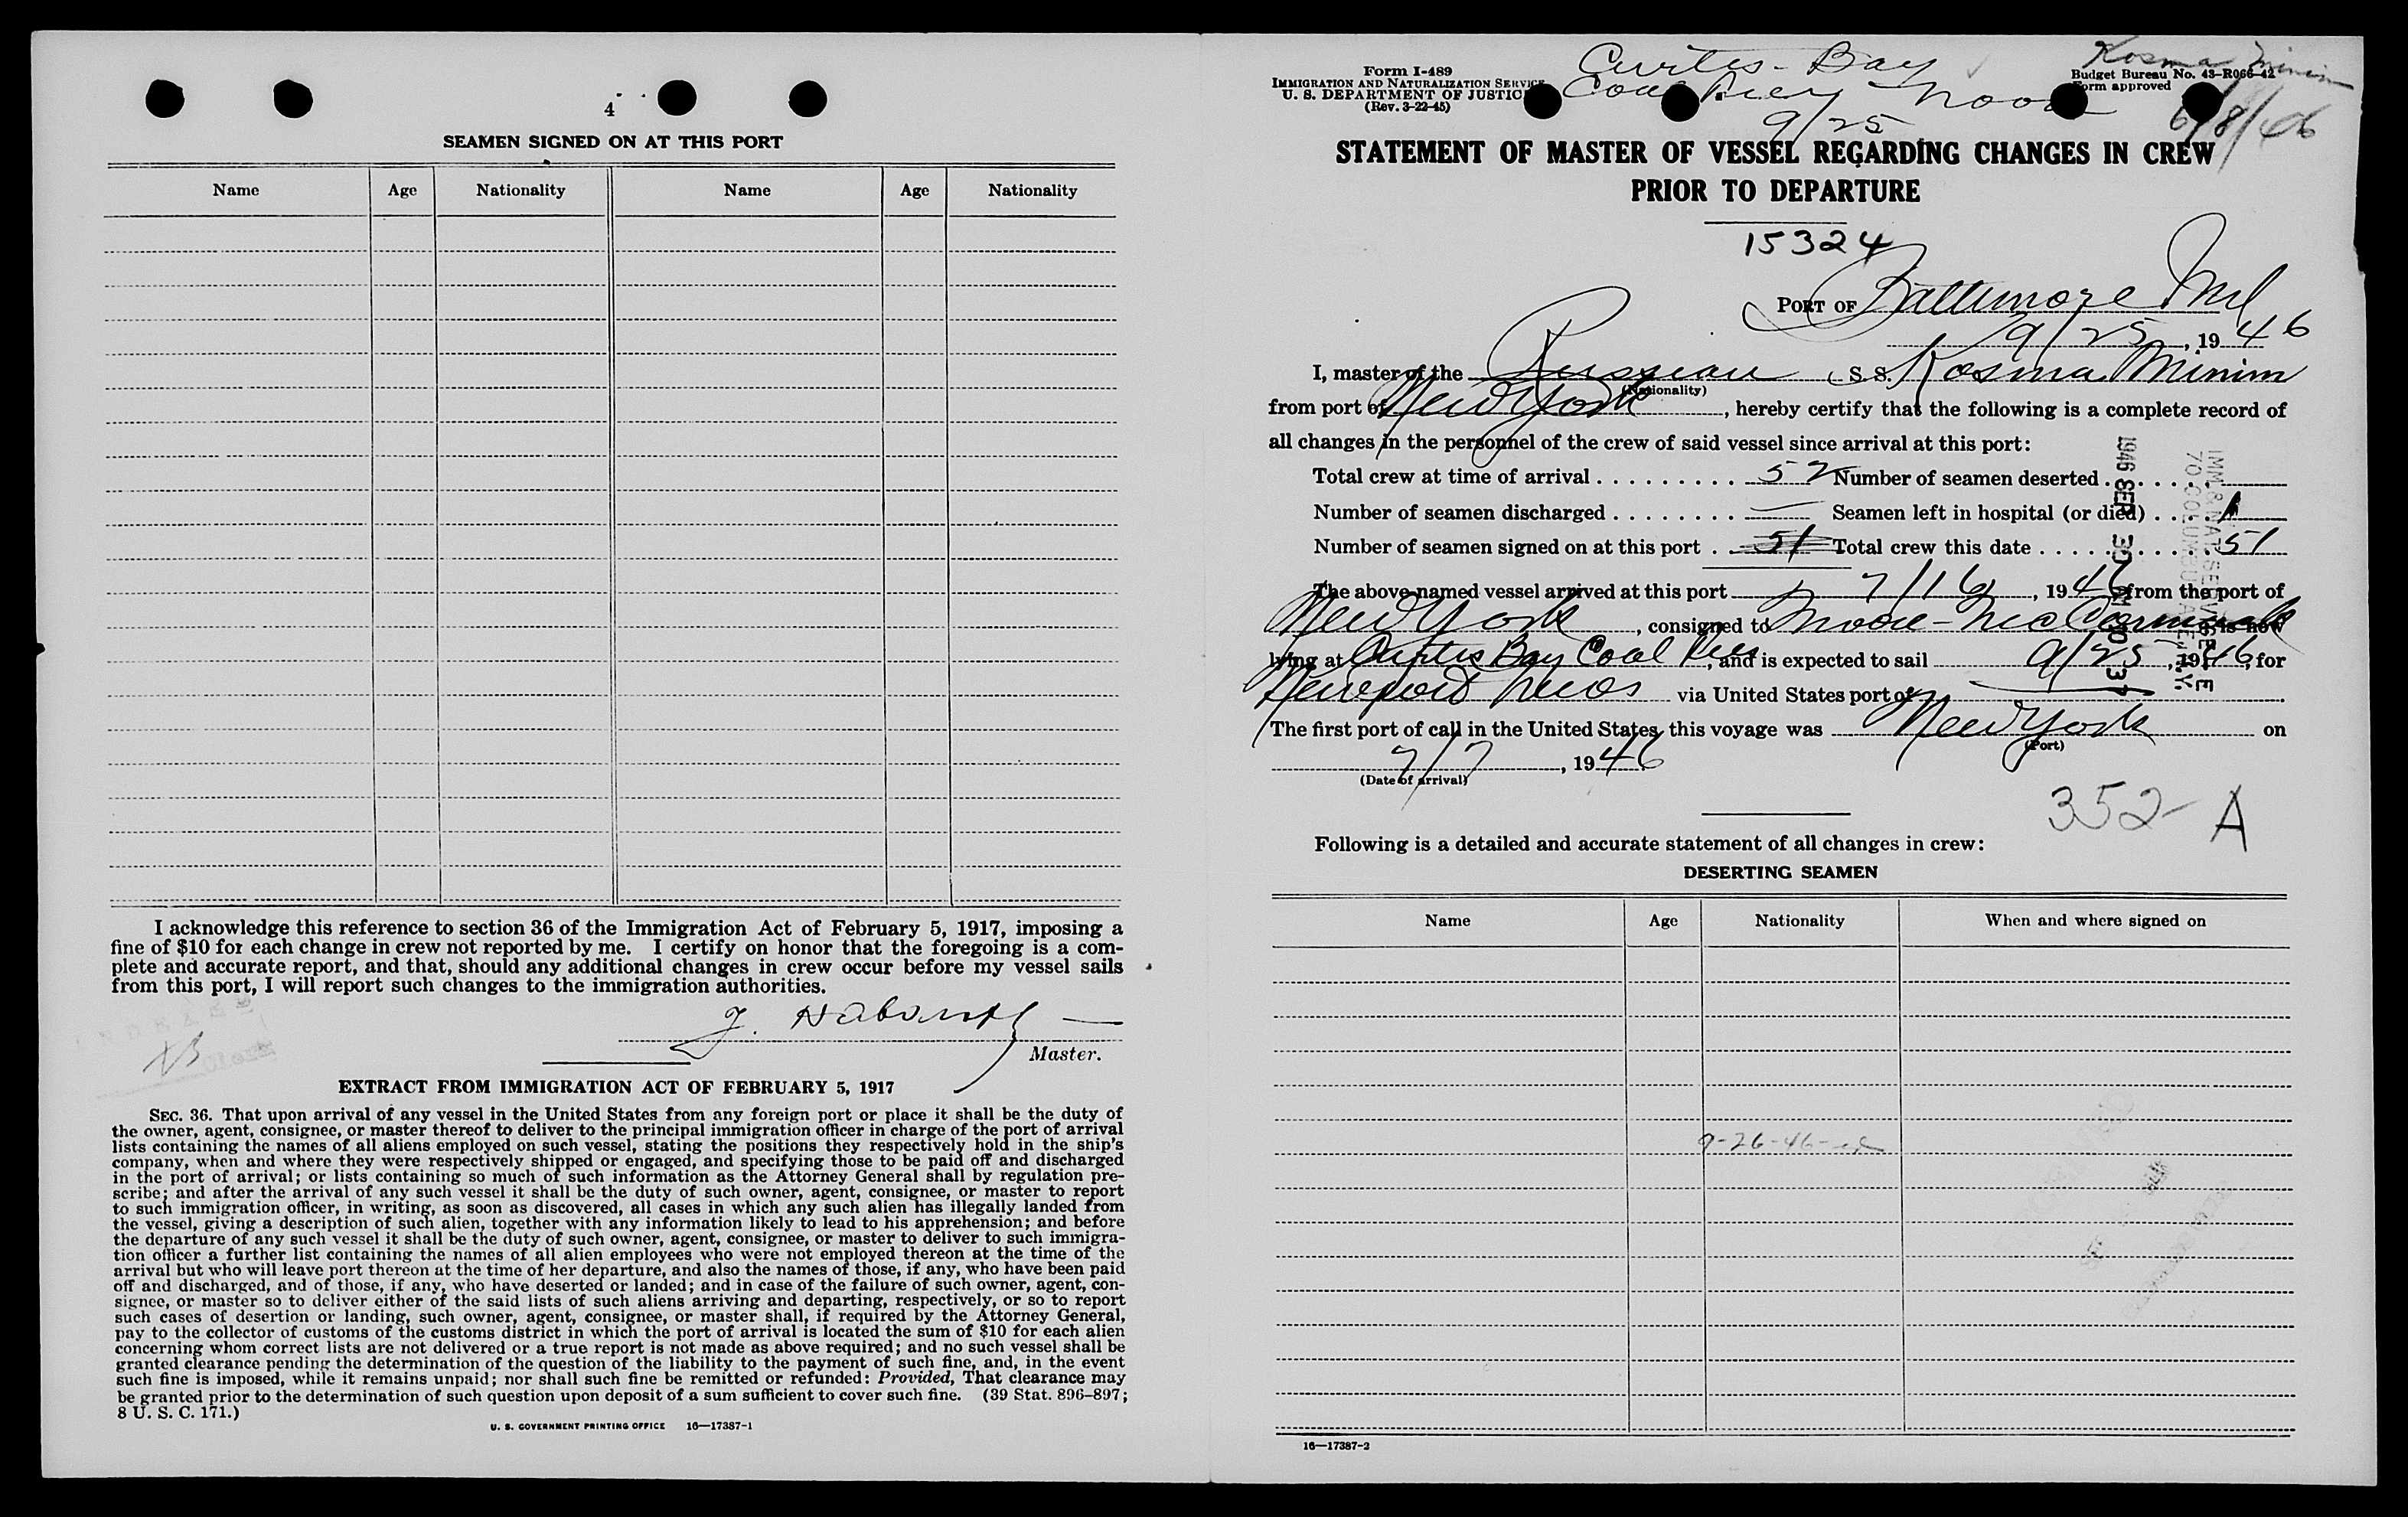 4
SEAMEN SIGNED ON AT THIS PORT
Name Age Nationality Name Age Nationality
I acknowledge this reference to section 36 of the Immigration Act of February 5, 1917, imposing a
fine of $10 for each change in crew not reported by me. I certify on honor that the foregoing is a com-
plete and accurate report, and that, should any additional changes in crew occur before my vessel sails
from this port, I will report such changes to the immigration authorities.
Master.
EXTRACT FROM IMMIGRATION ACT OF FEBRUARY 5, 1917
SEC. 36. That upon arrival of any vessel in the United States from any foreign port or place it shall be the duty of
the owner, agent, consignee, or master thereof to deliver to the principal immigration officer in charge of the port of arrival
lists containing the names of all aliens employed on such vessel, stating the positions they respectively hold in the ship's
company, when and where they were respectively shipped or engaged, and specifying those to be paid off and discharged
in the port of arrival; or lists containing so much of such information as the Attorney General shall by regulation pre-
scribe; and after the arrival of any such vessel it shall be the duty of such owner, agent, consignee, or master to report
to such immigration officer, in writing, as soon as discovered, all cases in which any such alien has illegally landed from
the vessel, giving a description of such alien, together with any information likely to lead to his apprehension; and before
the departure of any such vessel it shall be the duty of such owner, agent, consignee, or master to deliver to such immigra-
tion officer a further list containing the names of all alien employees who were not employed thereon at the time of the
arrival but who will leave port thereon at the time of her departure, and also the names of those, if any, who have been paid
off and discharged, and of those, if any, who have deserted or landed; and in case of the failure of such owner, agent, con-
signee, or master so to deliver either of the said lists of such aliens arriving and departing, respectively, or so to report
such cases of desertion or landing, such owner, agent, consignee, or master shall, if required by the Attorney General,
pay to the collector of customs of the customs district in which the port of arrival is located the sum of $10 for each alien
concerning whom correct lists are not delivered or a true report is not made as above required; and no such vessel shall be
granted clearance pending the determination of the question of the liability to the payment of such fine, and, in the event
such fine is imposed, while it remains unpaid; nor shall such fine be remitted or refunded: Provided, That clearance may
be granted prior to the determination of such question upon deposit of a sum sufficient to cover such fine. (39 Stat. 896–897;
8 U. S. C. 171.)
U. S. GOVERNMENT PRINTING OFFICE 16—17387-1
Form I-489
IMMIGRATION AND NATURALIZATION SERVICE
U. S. DEPARTMENT OF JUSTICE
(Rev. 3-22-45)
Curtis-Bay
Coal Pier Noon
9/25
Kosma Minim
Budget Bureau No. 43-R066-42
Form approved
6/8/46
STATEMENT OF MASTER OF VESSEL REGARDING CHANGES IN CREW
PRIOR TO DEPARTURE
15324
PORT OF Baltimore Md
9/25, 1946
I, master of the Russian S. S. Kosma Minim
(Nationality)
from port of New York, hereby certify that the following is a complete record of
all changes in the personnel of the crew of said vessel since arrival at this port:
Total crew at time of arrival 52 Number of seamen deserted
Number of seamen discharged — Seamen left in hospital (or died) 1
Number of seamen signed on at this port 51 Total crew this date 51
The above-named vessel arrived at this port 7/16, 1946 from the port of
New York, consigned to Moore-McCormack is now
lying at Curtis Bay Coal Pier, and is expected to sail 9/25, 1946, for
Newport News via United States port of —
The first port of call in the United States this voyage was New York on
(Port)
7/7, 1946
(Date of arrival)
1946 SEP 30 AM 10 31
IMM & NAT SERVICE
70 COLUMBUS AVE N.Y.
352 A
Following is a detailed and accurate statement of all changes in crew:
DESERTING SEAMEN
Name Age Nationality When and where signed on
9-26-46
16—17387-2